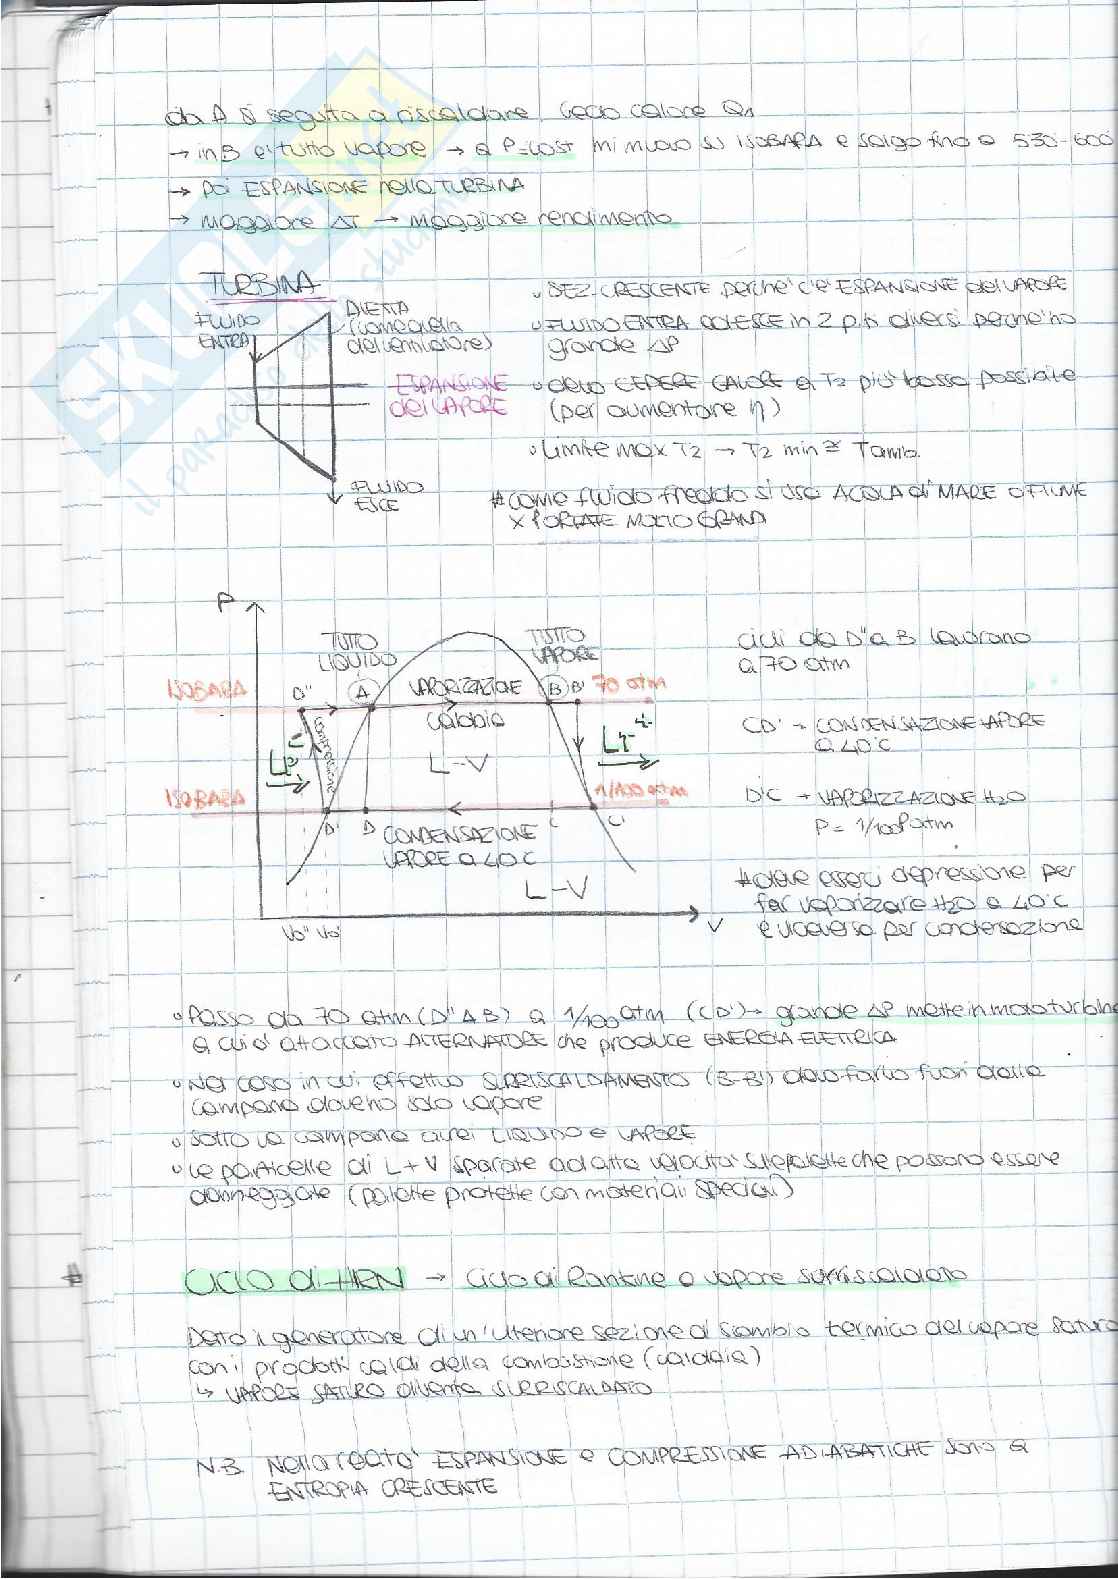 da A si seguita a riscaldare, cedo calore Q1
→ in B è tutto vapore → a P=cost mi muovo su ISOBARA e salgo fino a 530-600
→ poi ESPANSIONE nella TURBINA
→ maggiore ΔT → maggiore rendimento
TURBINA
FLUIDO ENTRA
ALETTA (come quella del ventilatore)
ESPANSIONE del VAPORE
FLUIDO ESCE
SEZ. CRESCENTE perché c'è ESPANSIONE del VAPORE
FLUIDO ENTRA ed ESCE in 2 p.ti diversi perché ho
grande ΔP
devo CEDERE CALORE a T2 più bassa possibile
(per aumentare η)
Limite max T2 → T2 min ≅ Tamb.
# come fluido freddo si usa ACQUA di MARE o FIUME
x PORTATE MOLTO GRANDI
P
TUTTO LIQUIDO
TUTTO VAPORE
ISOBARA
D"
A
VAPORIZZAZIONE
caldaia
B
B'
70 atm
L-V
compressione
Lp
LT
ISOBARA
1/100 atm
D'
D
CONDENSAZIONE
VAPORE a 40°C
C
C'
L-V
V
Vo" Vo'
cicli da D" a B lavorano
a 70 atm
CD' → CONDENSAZIONE VAPORE
a 40°C
D'C → VAPORIZZAZIONE H2O
P= 1/100 atm
# deve esserci depressione per
far vaporizzare H2O a 40°C
e viceversa per condensazione
Passo da 70 atm (D" A B) a 1/100 atm (CD') → grande ΔP mette in moto turbina
a cui è attaccato ALTERNATORE che produce ENERGIA ELETTRICA
Nel caso in cui effettuo SURRISCALDAMENTO (B-B') devo farlo fuori dalla
campana dove ho solo vapore
Sotto la campana avrei LIQUIDO e VAPORE
Le particelle di L+V sparate ad alta velocità sulle palette che possono essere
danneggiate (palette protette con materiali speciali)
# CICLO di HIRN → Ciclo di Rankine a vapore surriscaldato
Doto il generatore di un'ulteriore sezione di scambio termico del vapore saturo
con i prodotti caldi della combustione (caldaia)
↳ VAPORE SATURO diventa SURRISCALDATO
N.B. Nella realtà ESPANSIONE e COMPRESSIONE ADIABATICHE sono a
ENTROPIA CRESCENTE
SKUOLA.net
il paradiso dello studente